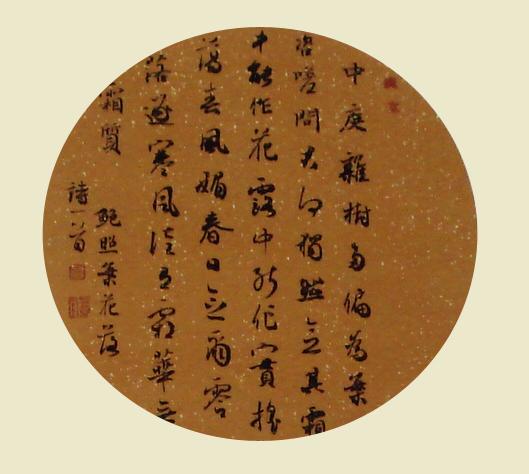 中庭雜樹多偏為梅
咨嗟問君何獨然念其霜
中能作花露中能作實搖
蕩春風媚春日念爾零
落逐寒風徒有霜華無
霜質
鮑照梅花落
詩一首